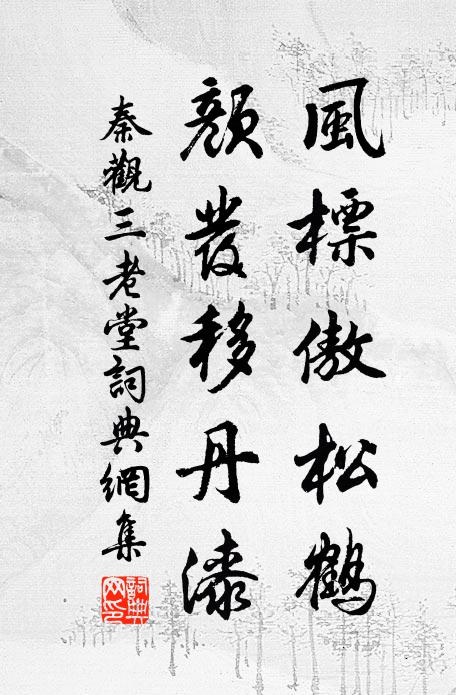 風標傲松鶴
顏發移丹漆
秦觀三老堂詞典網集